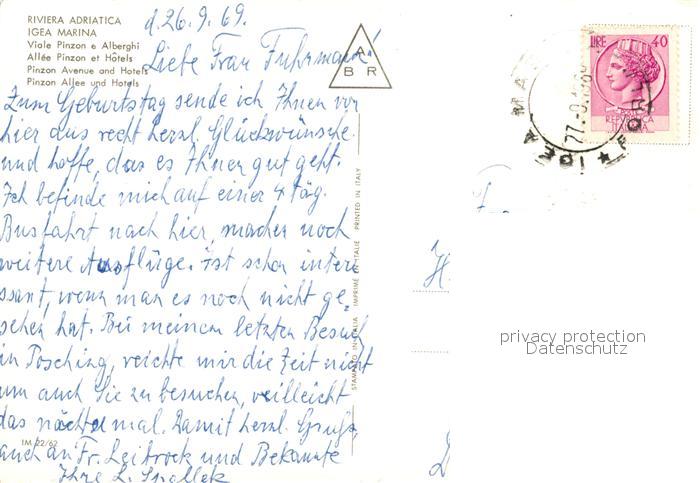 RIVIERA ADRIATICA
IGEA MARINA
Viale Pinzon e Alberghi
Allée Pinzon et Hôtels
Pinzon Avenue and Hotels
Pinzon Allee und Hotels
d. 26.9.69.
Liebe Frau Fuhrmann!
Zum Geburtstag sende ich Ihnen von
hier aus recht herzl. Glückwünsche
und hoffe, das es Ihnen gut geht.
Ich befinde mich auf einer 4 täg.
Busfahrt nach hier, machen noch
weitere Ausflüge. ist schon intere
ssant, wenn man es noch nicht ge-
sehen hat. Bei meinem letzten Besuch
in Posching, reichte mir die Zeit nicht
um auch Sie zu besuchen, veilleicht
das nächste mal. Damit herzl. Gruß,
auch an Fr. Leibrock und Bekannte
Ihre L.
IM 22/62
A
B R
STAMPATO IN ITALIA IMPRIMÉ EN ITALIE PRINTED IN ITALY
LIRE 40
REPVBBLICA
ITALIANA
IGEA MA
FORLI
H.
privacy protection
Datenschutz